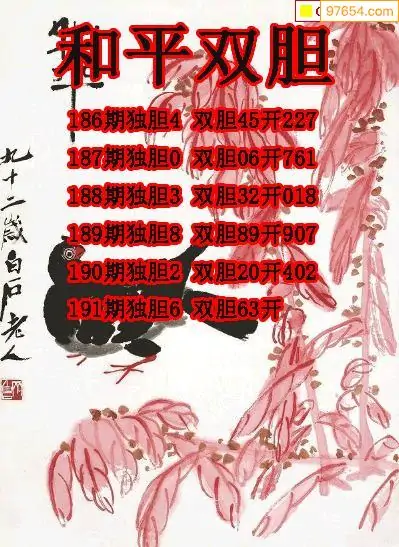 97654.com
和平双胆
186期独胆4 双胆45开227
187期独胆0 双胆06开761
188期独胆3 双胆32开018
189期独胆8 双胆89开907
190期独胆2 双胆20开402
191期独胆6 双胆63开
九十二岁白石老人